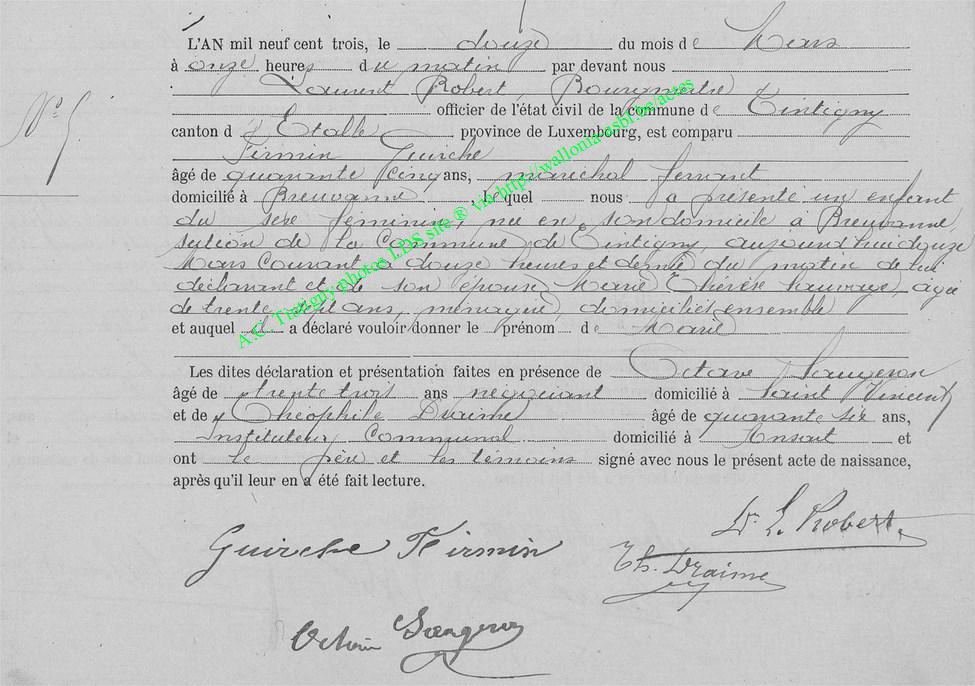 N° 5
L'AN mil neuf cent trois, le douze du mois de Mars
à onze heures du matin par devant nous
Laurent Robert, Bourgmestre
officier de l'état civil de la commune de Tintigny
canton d'Etalle province de Luxembourg, est comparu
Firmin Guirche
âgé de quarante cinq ans, maréchal ferrant
domicilié à Breuvanne, lequel nous a présenté un enfant
du sexe féminin, née en son domicile à Breuvanne,
section de la Commune de Tintigny, aujourd'hui douze
Mars courant à douze heures et demie du matin de lui
déclarant et de son épouse Marie Thérèse Sauvage, âgée
de trente sept ans, ménagère, domiciliés ensemble
et auquel il a déclaré vouloir donner le prénom de Marie
Les dites déclaration et présentation faites en présence de Octave
âgé de trente trois ans négociant domicilié à Saint Vincent
et de Théophile Draime âgé de quarante six ans,
Instituteur Communal domicilié à Ansart et
ont le père et les témoins signé avec nous le présent acte de naissance,
après qu'il leur en a été fait lecture.
Dr L. Robert
Guirche Firmin
Th. Draime
A.C. Tintigny photos LDS site ® via http://wallonia-asbl.be/actes